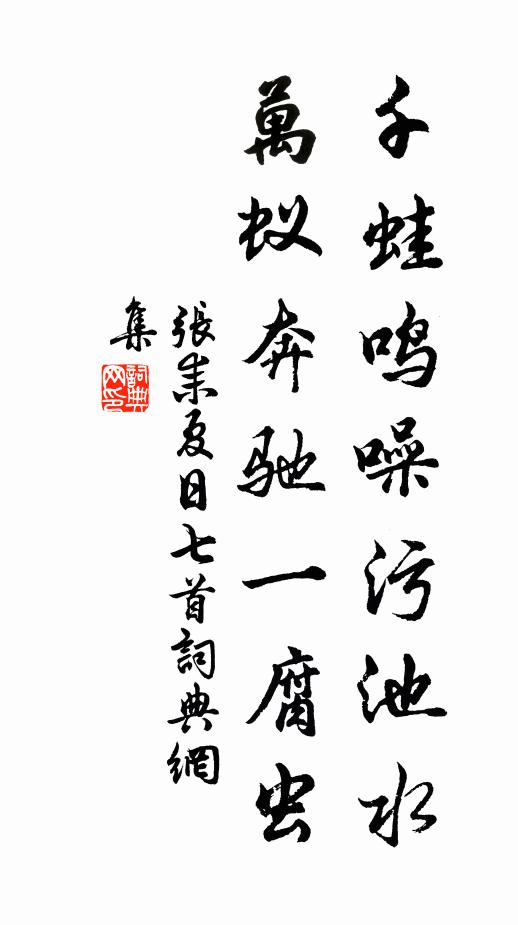 千蛙鸣噪污池水
萬蚁奔驰一腐虫
張耒夏日七首詞典網
集
詞典
网印